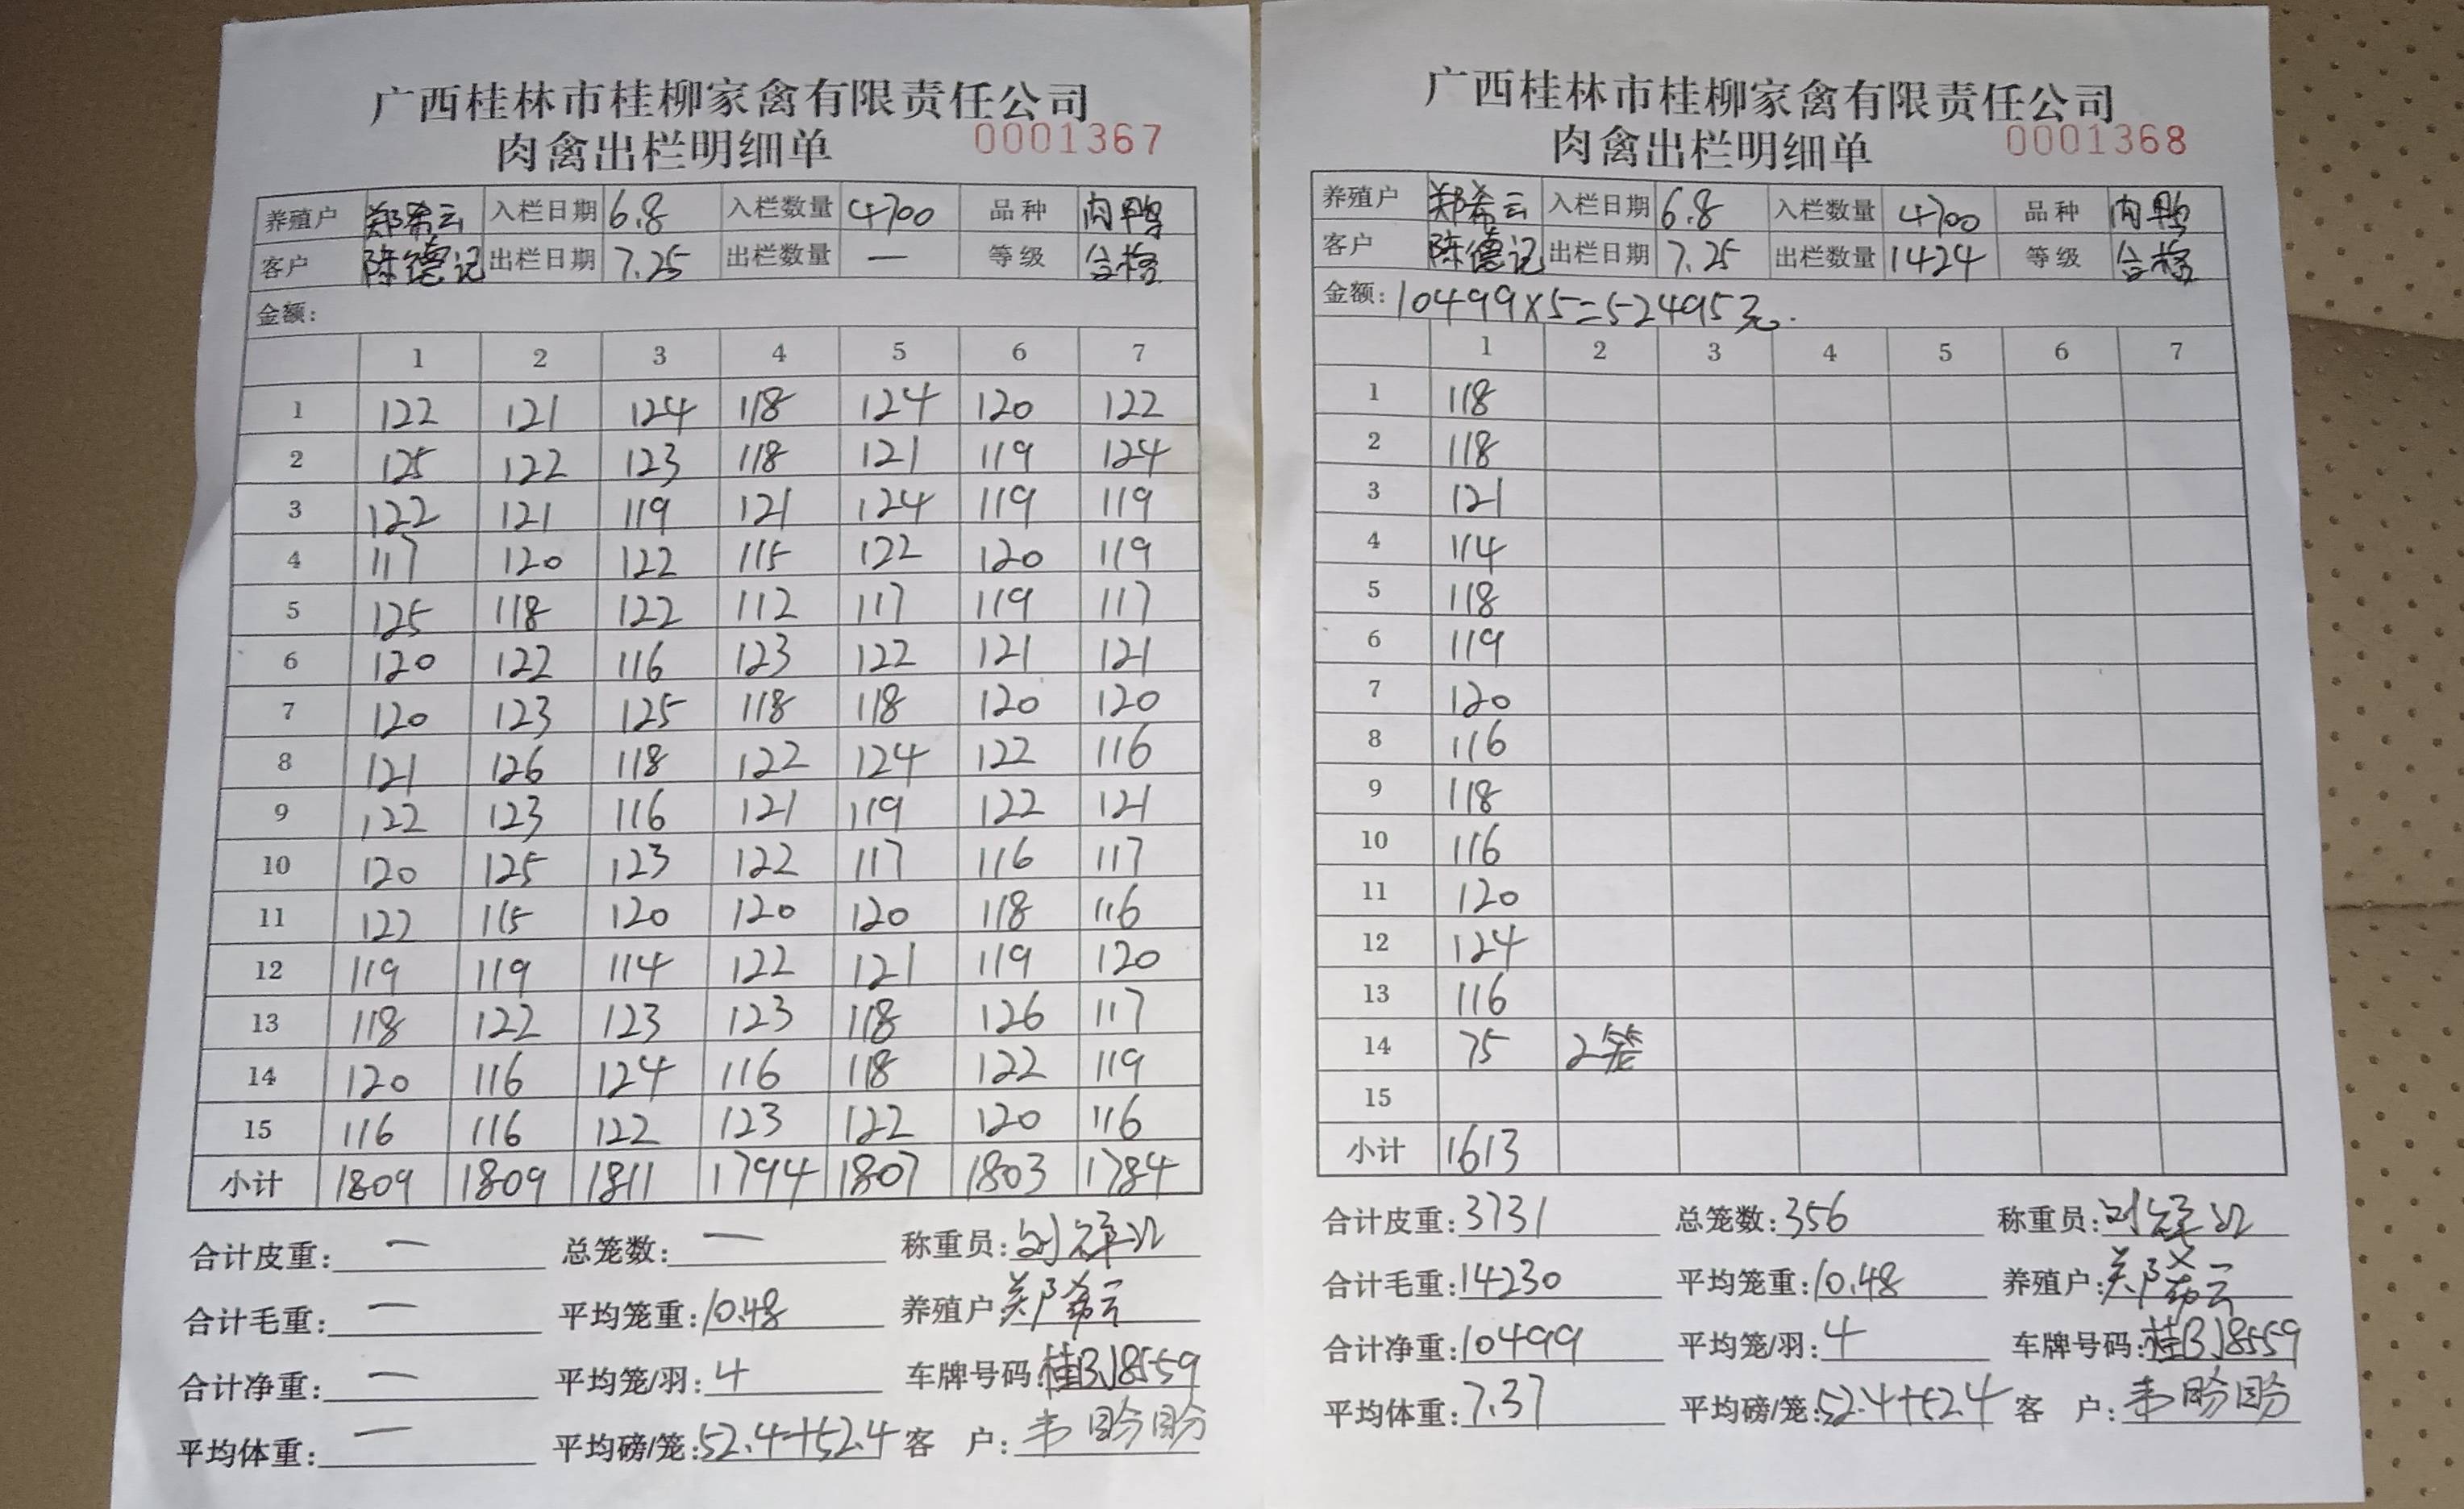 广西桂林市桂柳家禽有限责任公司
肉禽出栏明细单 0001367
养殖户 郑希云 入栏日期 6.8 入栏数量 4700 品种 肉鸭
客户 陈德记 出栏日期 7.25 出栏数量 — 等级 合格
金额:
1 2 3 4 5 6 7
1 122 121 124 118 124 120 122
2 125 122 123 118 121 119 124
3 122 121 119 121 124 119 119
4 117 120 122 115 122 120 119
5 125 118 122 112 117 119 117
6 120 122 116 123 122 121 121
7 120 123 125 118 118 120 120
8 121 126 118 122 124 122 116
9 122 123 116 121 119 122 121
10 120 125 123 122 117 116 117
11 122 115 120 120 120 118 116
12 119 119 114 122 121 119 120
13 118 122 123 123 118 126 117
14 120 116 124 116 118 122 119
15 116 116 122 123 122 120 116
小计 1809 1809 1811 1794 1807 1803 1784
合计皮重: — 总笼数: — 称重员: 刘
合计毛重: — 平均笼重: 10.48 养殖户: 郑希云
合计净重: — 平均笼/羽: 4 车牌号码: 桂BJ8559
平均体重: — 平均磅/笼: 52.4+52.4 客 户: 韦盼盼
广西桂林市桂柳家禽有限责任公司
肉禽出栏明细单 0001368
养殖户 郑希云 入栏日期 6.8 入栏数量 4700 品种 肉鸭
客户 陈德记 出栏日期 7.25 出栏数量 1424 等级 合格
金额: 10499×5=52495元.
1 2 3 4 5 6 7
1 118
2 118
3 121
4 114
5 118
6 119
7 120
8 116
9 118
10 116
11 120
12 124
13 116
14 75 2笼
15
小计 1613
合计皮重: 3731 总笼数: 356 称重员: 刘
合计毛重: 14230 平均笼重: 10.48 养殖户: 郑希云
合计净重: 10499 平均笼/羽: 4 车牌号码: 桂BJ8559
平均体重: 7.37 平均磅/笼: 52.4+52.4 客 户: 韦盼盼